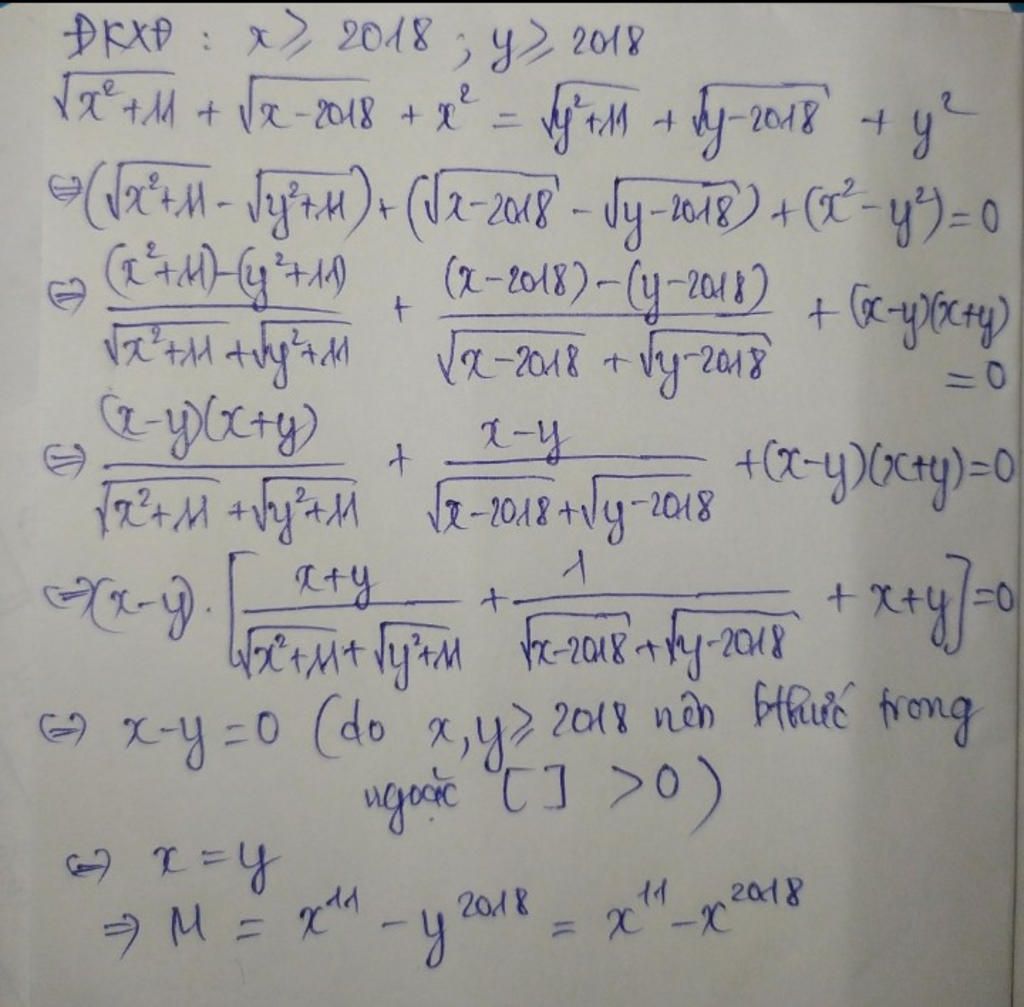 ĐKXĐ : x ≥ 2018 ; y ≥ 2018
√(x²+11) + √(x-2018) + x² = √(y²+11) + √(y-2018) + y²
⇔ (√(x²+11) - √(y²+11)) + (√(x-2018) - √(y-2018)) + (x²-y²) = 0
⇔ ((x²+11)-(y²+11))/(√(x²+11) + √(y²+11)) + ((x-2018)-(y-2018))/(√(x-2018) + √(y-2018)) + (x-y)(x+y)
= 0
⇔ ((x-y)(x+y))/(√(x²+11) + √(y²+11)) + (x-y)/(√(x-2018) + √(y-2018)) + (x-y)(x+y) = 0
⇔ (x-y). [(x+y)/(√(x²+11) + √(y²+11)) + 1/(√(x-2018) + √(y-2018)) + x+y] = 0
⇔ x-y = 0 (do x, y ≥ 2018 nên bthức trong
ngoặc [ ] > 0)
⇔ x = y
⇒ M = x¹¹ - y²⁰¹⁸ = x¹¹ - x²⁰¹⁸